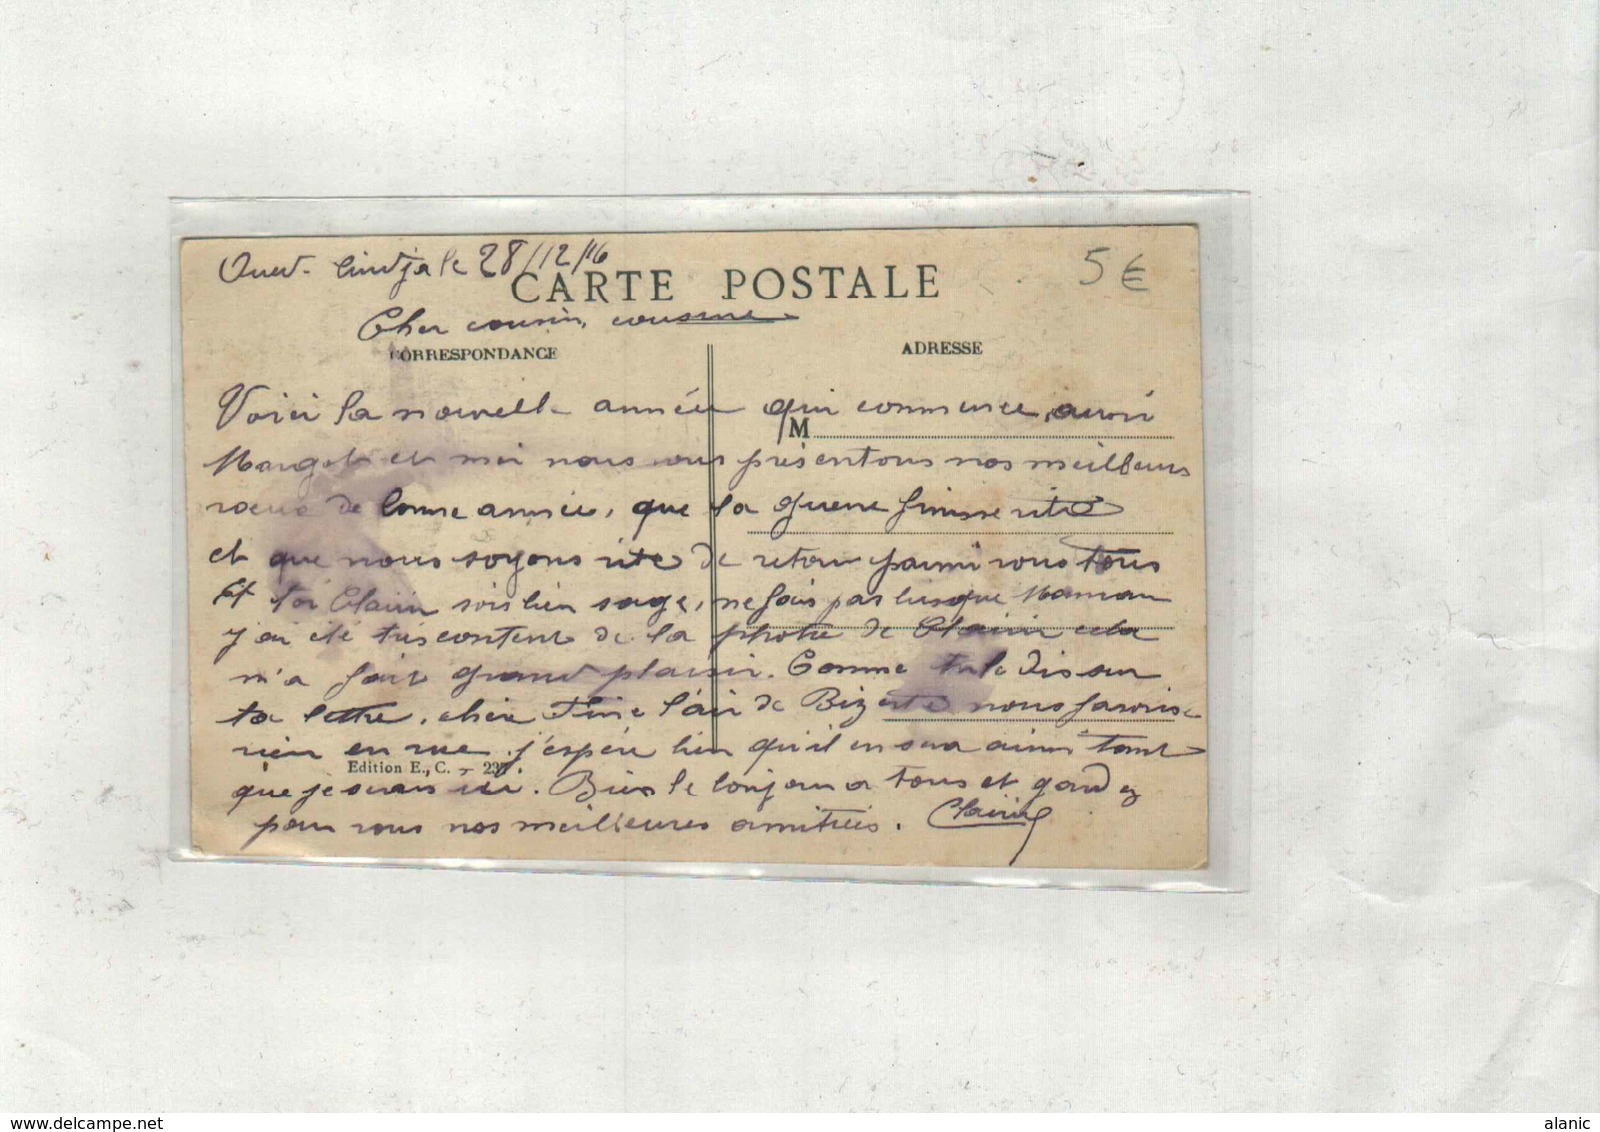 le 28/12/16
5 €
CARTE POSTALE
Cher cousin, cousine
CORRESPONDANCE
ADRESSE
Voici la nouvelle année qui commence, aussi
M
Margot et moi nous vous présentons nos meilleurs
vœux de bonne année, que la guerre finisse vite
et que nous soyons vite de retour parmi vous tous
Et toi Clairin sois bien sage, ne fais pas Maman
j'ai été très content de la photo de Clairin cela
m'a fait grand plaisir. Comme tu le dis sur
ta lettre, chère Fine l'air de Bizerte nous favorise
rien en vue j'espère bien qu'il en sera ainsi tant
Edition E., C. - 237
que je serais ici. Bien le bonjour a tous et gardez
pour vous nos meilleures amitiés. Clairin
delcampe.net
alanic